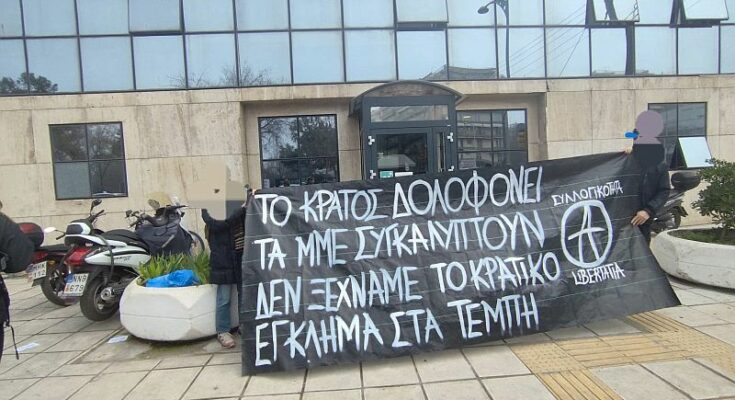 ΤΟ ΚΡΑΤΟΣ ΔΟΛΟΦΟΝΕΙ
ΤΑ ΜΜΕ ΣΥΓΚΑΛΥΠΤΟΥΝ
ΔΕΝ ΞΕΧΝΑΜΕ ΤΟ ΚΡΑΤΙΚΟ
ΕΓΚΛΗΜΑ ΣΤΑ ΤΕΜΠΗ
ΣΥΛΛΟΓΙΚΟΤΗΤΑ
A
LIBERTATIA